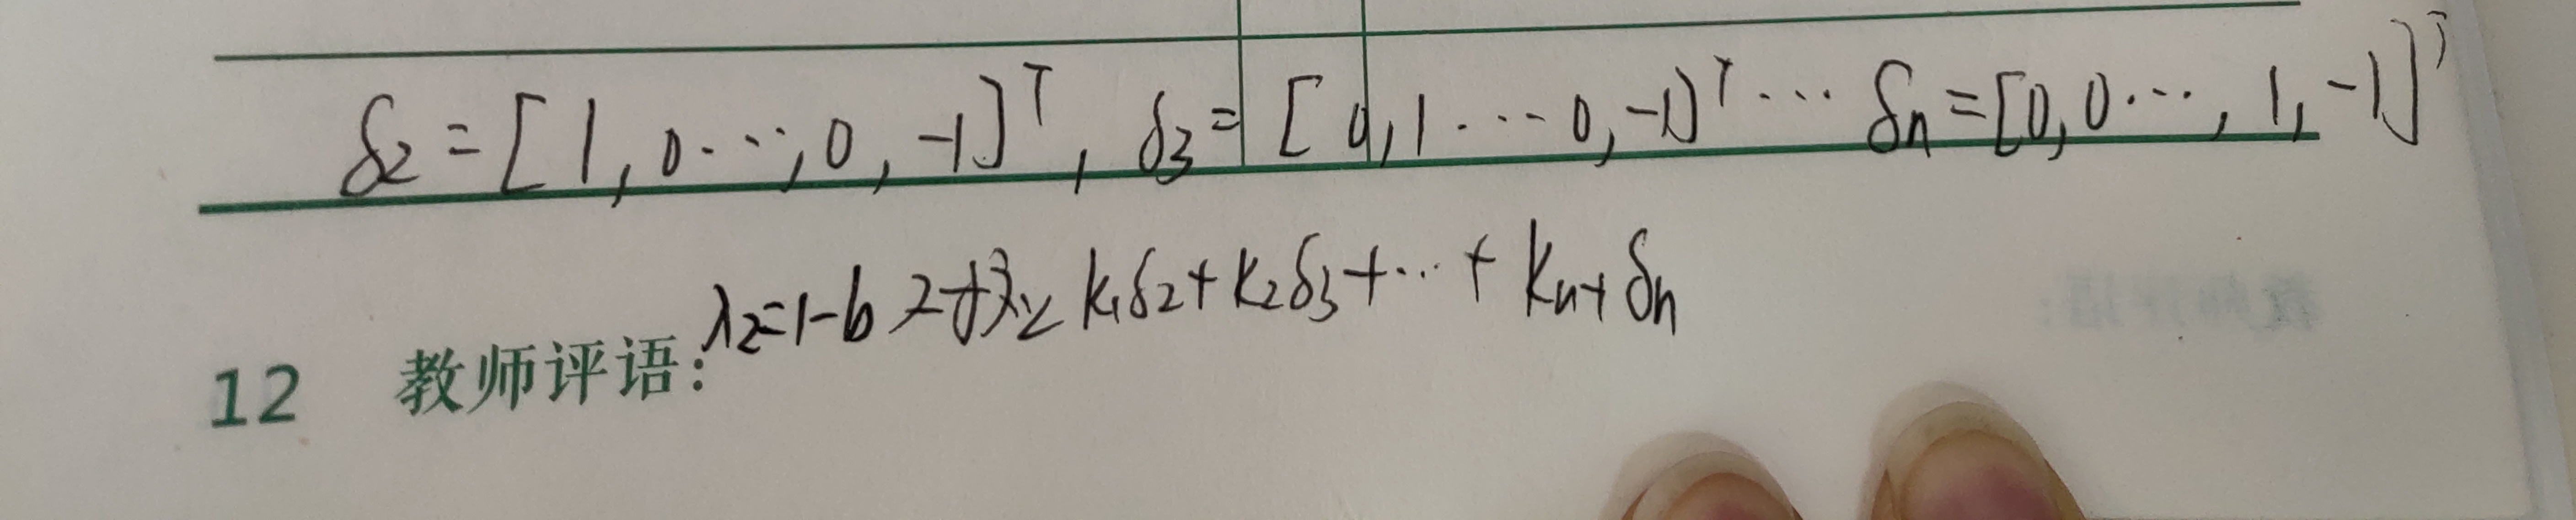 δ2 = [1, 0⋯, 0, -1]ᵀ, δ3 = [0, 1⋯0, -1]ᵀ ⋯ δn = [0, 0⋯, 1, -1]ᵀ
λ2=1-b k1δ2+k2δ3+⋯+kn-1δn
12 教师评语: